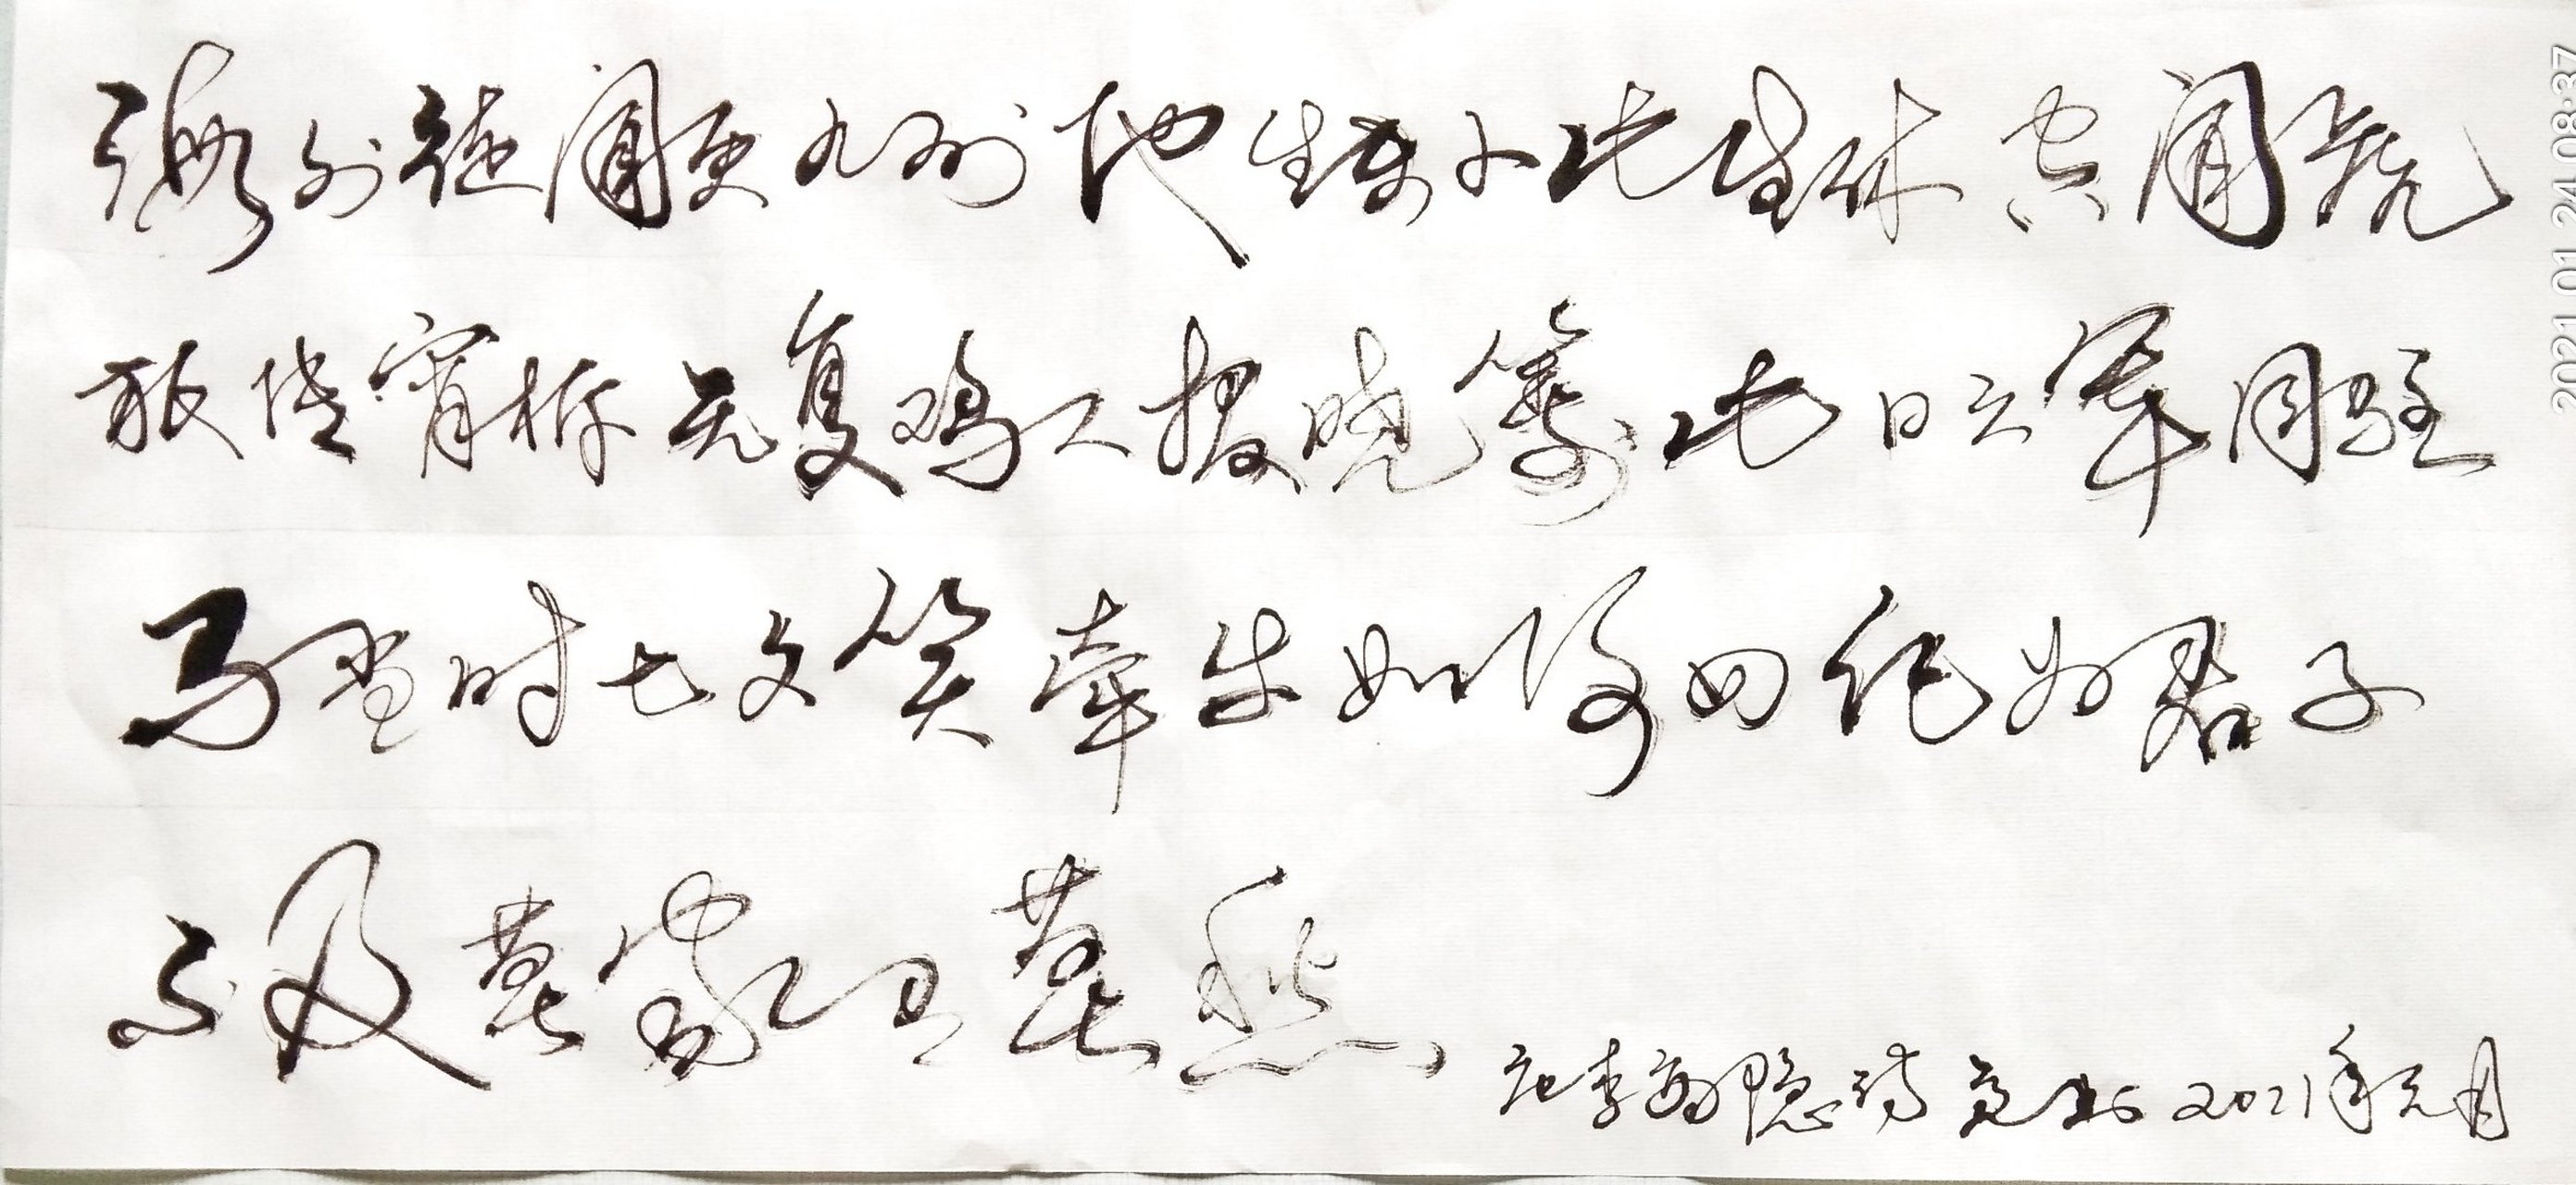 海外徒闻更九州他生未卜此生休空闻虎
旅传宵柝无复鸡人报晓筹此日六军同驻
马当时七夕笑牵牛如何四纪为君子
不及莫家有莫愁
李商隐诗 2021年元月
2021.01.24 08:37